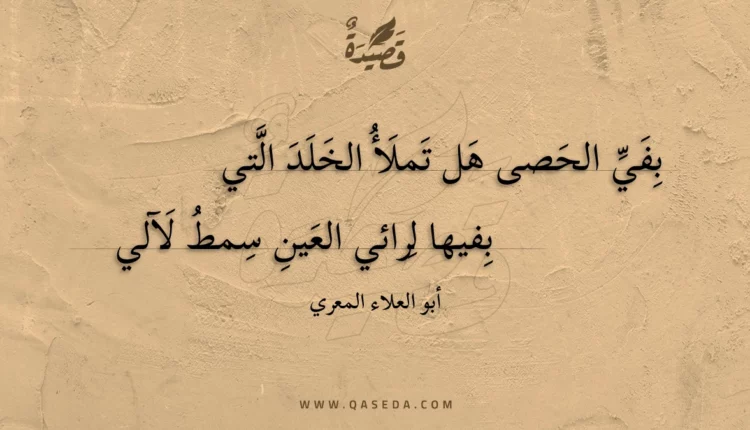 قَصِيدَةٌ
بِفَيِّ الحَصى هَل تَملَأُ الخَلَدَ الَّتي
بِفيها لِرائي العَينِ سِمطُ لَآلي
أبو العلاء المعري
WWW.QASEDA.COM